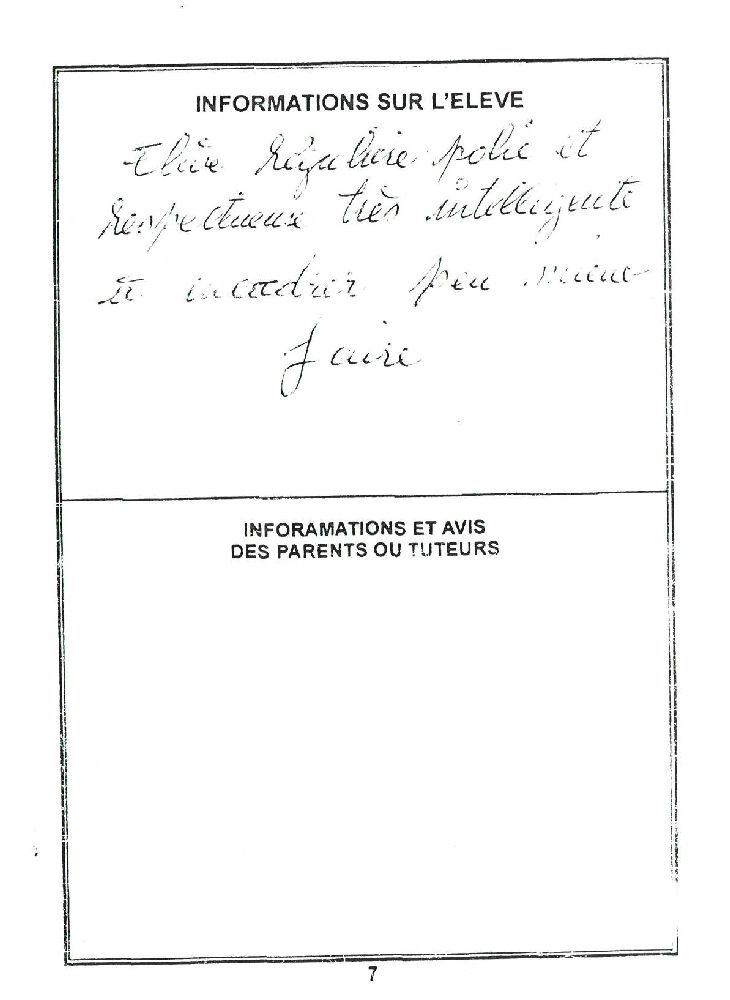 INFORMATIONS SUR L'ELEVE
Elève régulière polie et
respectueuse très intelligente
et encadrer peu mieux
faire
INFORAMATIONS ET AVIS
DES PARENTS OU TUTEURS
7